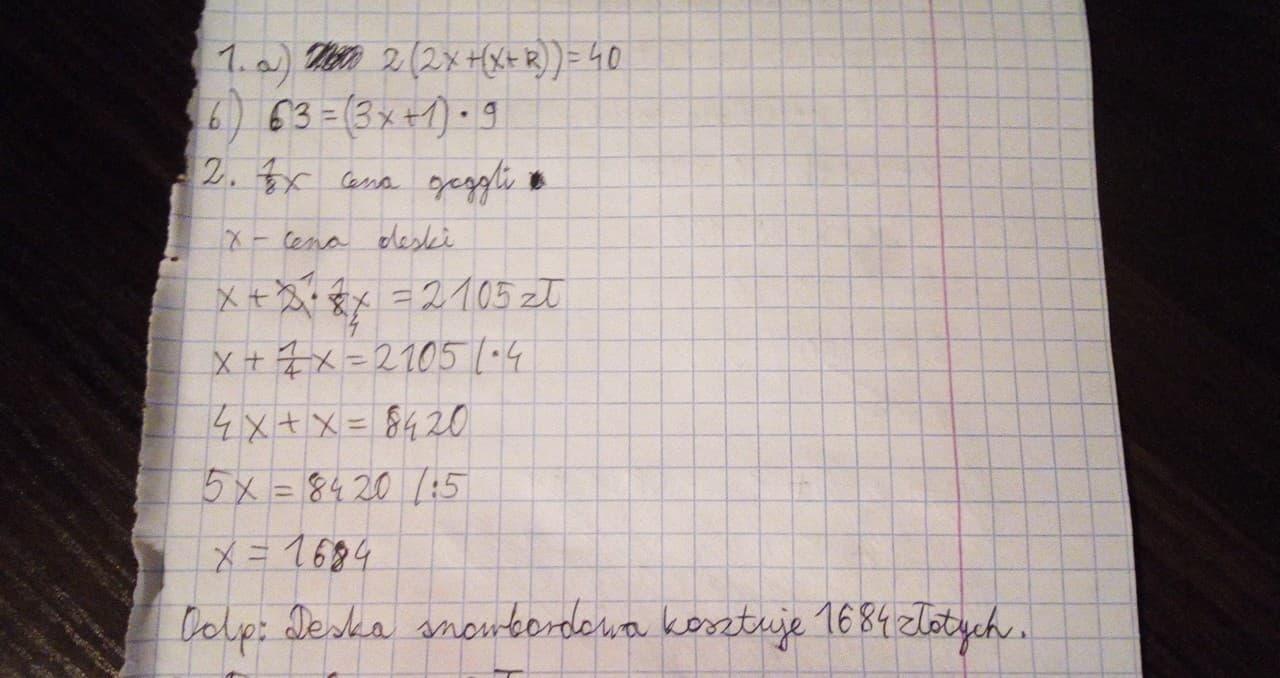 1. a) 2(2x+(x+R))=40
b) 63=(3x+1)·9
2. 1/8x cena goggli
x - cena deski
x + 2·1/8x = 2105 zł
x + 1/4x = 2105 /·4
4x + x = 8420
5x = 8420 /:5
x = 1684
Odp: Deska snowbordowa kosztuje 1684 złotych.